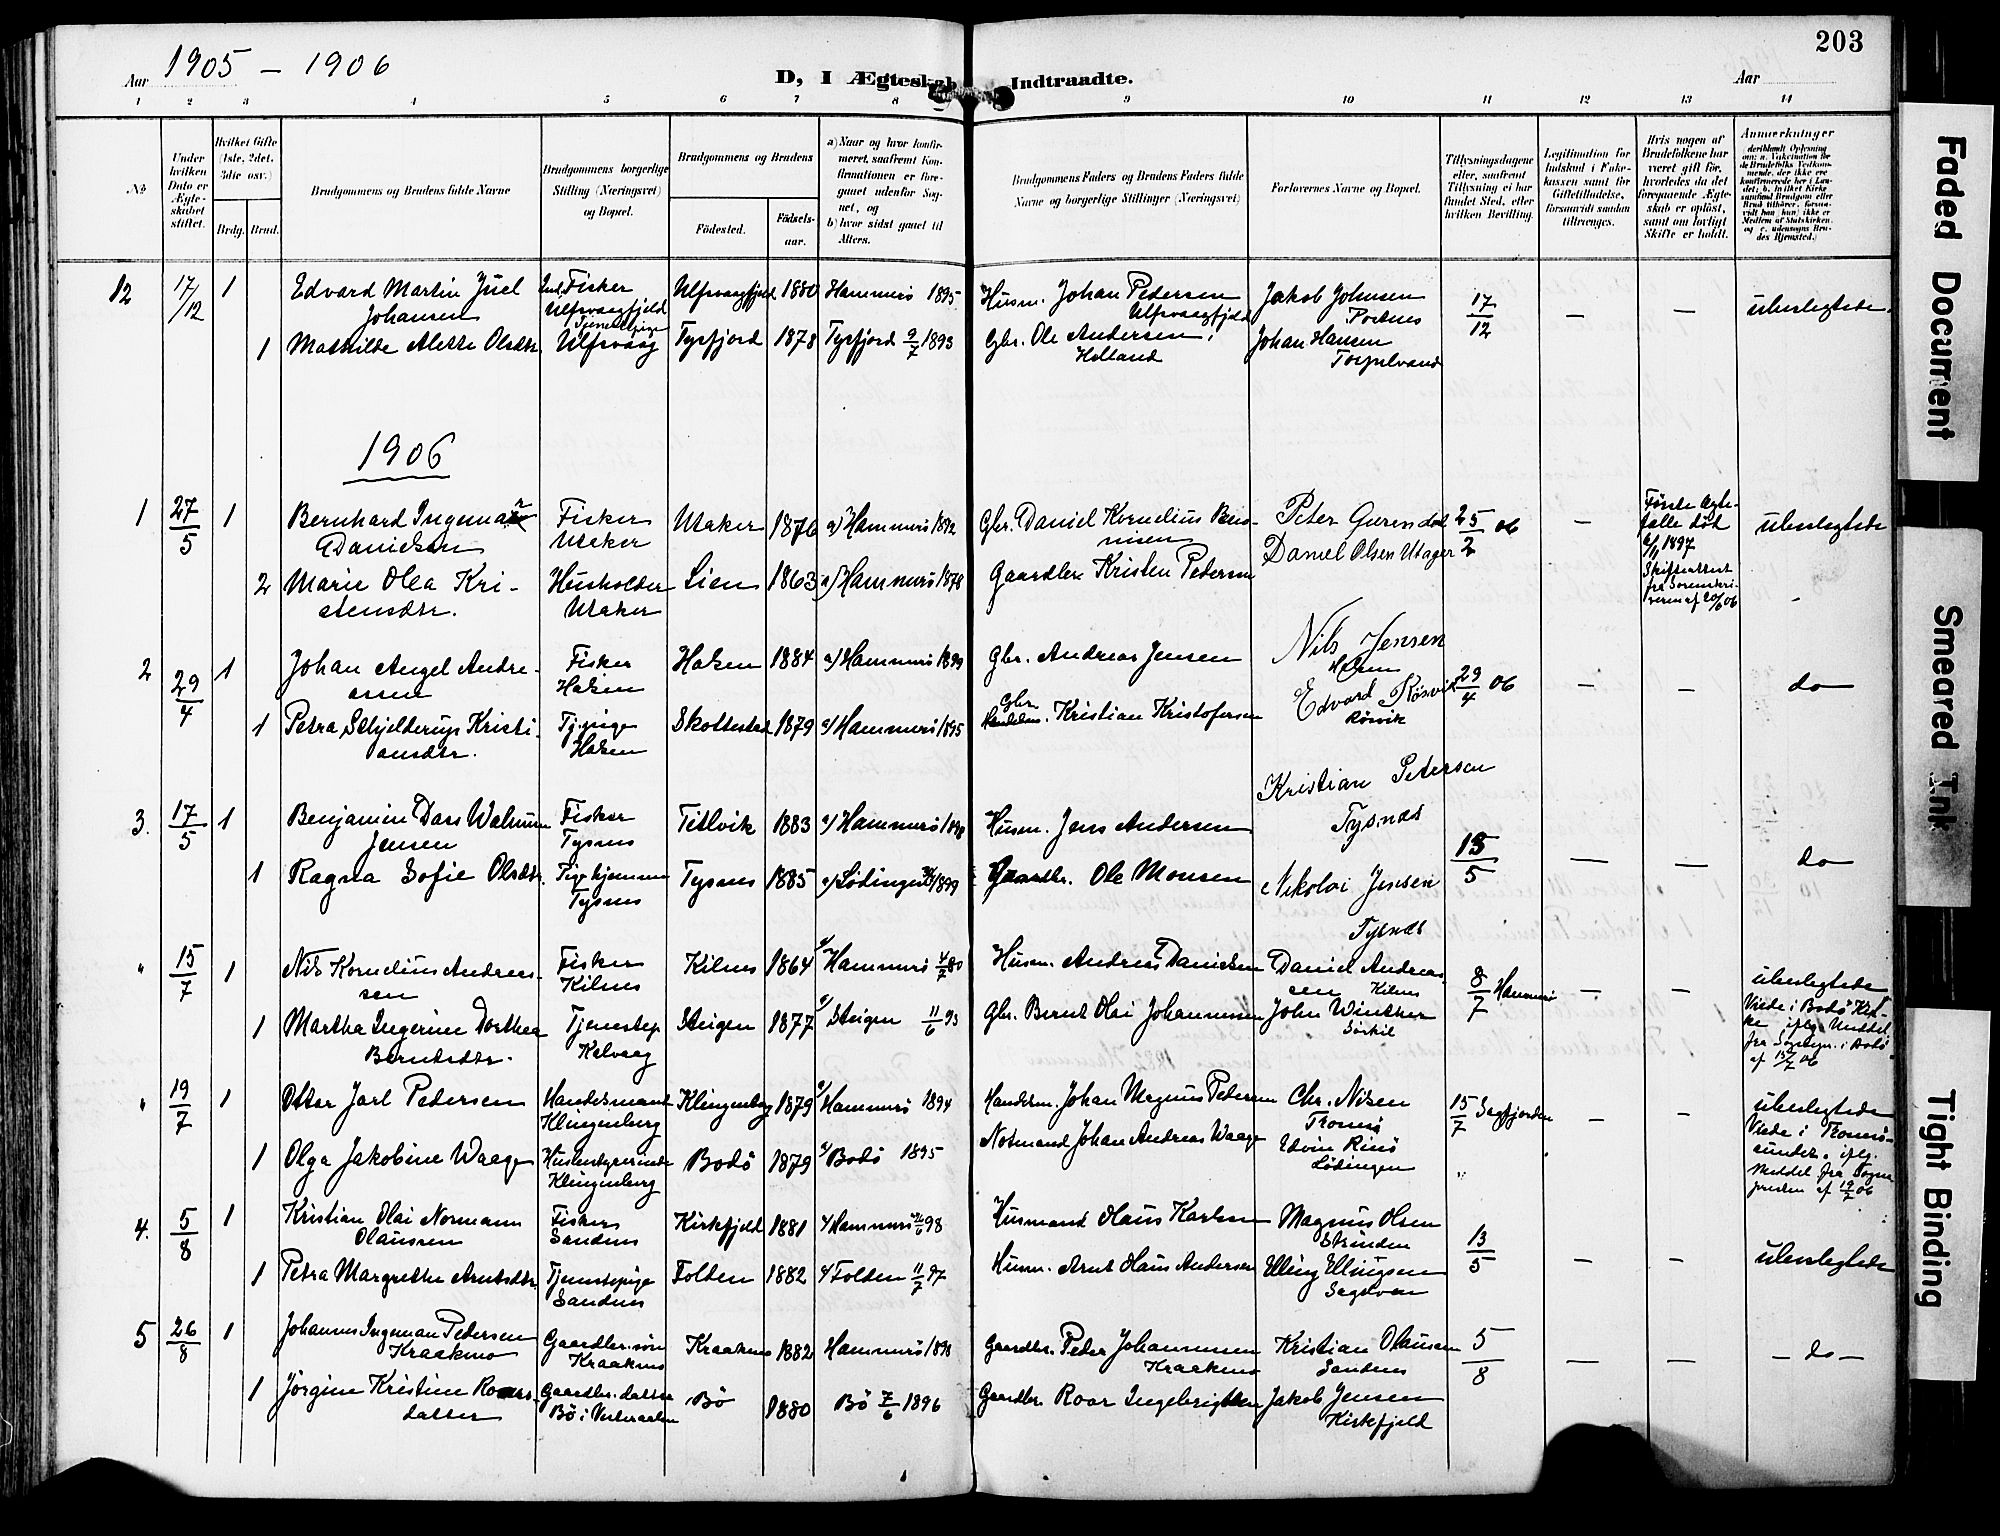 203
Aar 1905 - 1906
D, I Ægteskab Indtraadte.
Aar
1 2 3 4 5 6 7 8 9 10 11 12 13 14
No
Under hvilken Dato er Ægteskabet stiftet.
Hvilket Gifte (1ste, 2det, 3die osv.)
Brdg. Brud.
Brudgommens og Brudens fulde Navne
Brudgommens borgerlige Stilling (Næringsvei) og Bopæl.
Brudgommens og Brudens
Fødested.
Fødselsaar.
a) Naar og hvor konfirmeret, saafremt Konfirmationen er foregaaet udenfor Sognet, og
b) hvor sidst gaaet til Alters.
Brudgommens Faders og Brudens Faders fulde Navne og borgerlige Stillinger (Næringsvei)
Forlovernes Navne og Bopæl.
Tillysningsdagene eller, saafremt Tillysning ei har fundet Sted, efter hvilken Bevilling.
Legitimation for Indskud i Enkekassen samt for Giftetilladelse, forsaavidt saadan tiltrænges.
Hvis nogen af Brudefolkene har været gift før, hvorledes da det foregaaende Ægteskab er opløst, samt om lovligt Skifte er holdt.
Anmerkninger
12 17/12 1 Edvard Martin Juel Johansen Fisker Ulfsvaagfjeld Ulfsvaagfjeld 1880 Hammerø 1895 Husm. Johan Pedersen Ulfsvaagfjeld Jakob Johnsen 17/12 — — ubeslegtede.
1 Mathilde Alette Olsdtr. Ulfsvaag Tysfjord 1878 Tysfjord 9/7 1893 Gbr. Ole Andersen, Helland Johan Hansen
1906
1 27/5 1 Bernhard Ingemar Danielsen Fisker Utaker Utaker 1876 a) Hammerø 1892 Gbr. Daniel Kornelius Peter Gerendal 25/2 06 — Første Ægtefælle død 1897 ubeslegtede
2 Marie Olea Kristensdtr. Husholder Utaker Lien 1863 a) Hammerø 1878 Gaardbr. Kristen Pedersen Daniel Olsen Utager Skifteattest fra Sorenskriveren af 20/6 06
2 29/4 1 Johan Angel Andreassen Fisker Halsen Halsen 1884 a) Hammerø 1899 Gbr. Andreas Jensen Nils Jensen 29/4 06 — — do
1 Petra Schjelderup Kristiansdtr. Halsen Skottestad 1879 a) Hammerø 1895 Gbr. Kristian Kristofersen Edvard Røsvik Røsvik
3. 17/5 1 Benjamin Dass Walnum Jensen Fisker Tysnes Titlvik 1883 a) Hammerø 1898 Husm. Jens Andersen Kristian Petersen Tysnes 13/5 — — do
1 Ragna Sofie Olsdtr. Tysnes Tysnes 1885 a) Lødingen 1899 Gaardbr. Ole Monsen Nikolai Jensen Tysnes
" 15/7 1 Nils Kornelius Andreassen Fisker Kilnes Kilnes 1864 a/ Hammerø 4/7 80 Husm. Andreas Danielsen Daniel Andreassen Kilnes 8/7 Hammerø — — ubeslegtede
1 Martha Ingerine Dorthea Berntsdtr. Tjenestep. Kalvaag Steigen 1877 a/ Steigen 11/6 93 Gbr. Bernt Olai Johannessen John Winther Sørkil Viede i Bodø Kirke, iflg. Meddel. fra Sognepr. i Bodø af 15/7 06
" 19/7 1 Otter Jarl Pedersen Handelsmand Klingenberg Klingenberg 1879 a/ Hammerø 1894 Handelsm. Johan Magnus Pedersen Chr. Nilsen Tromsø 15/7 Sagfjorden — — ubeslegtede
1 Olga Jakobine Waage Husbestyrerinde Klingenberg Bodø 1879 a/ Bodø 1895 Notmand Johan Andreas Waage Edvin Rinø Lødingen " Viede i Tromsøsundet, iflg. Meddel. fra Sognepresten af 19/7 06
4. 5/8 1 Kristian Olai Normann Olaussen Fisker Sandnes Kirkfjeld 1881 a/ Hammerø 98 Husmand Olaus Karlsen Magnus Olsen Strinden 13/5 — — ubeslegtede
1 Petra Margrethe Arntsdtr. Tjenestepige Sandnes Folden 1882 a/ Folden 11/7 97 Husm. Arnt Hans Andersen Elling Ellingsen Sagelven
5 26/8 1 Johannes Ingeman Pedersen Kraakmo Gaardbr.søn Kraakmo Kraakmo 1882 Hammerø 1898 Gaardbr. Peder Johannessen Kraakmo Kristian Olaussen Sandnes 5/8 — — — do —
1 Jørgine Kristine Roarsdatter Gaardbr.datter Bø i Vesteraalen Bø 1880 Bø 7/6 1896 Gaardbr. Roar Ingebrigtsen Jakob Jensen Kirkfjeld
Faded Document
Smeared Ink
Tight Binding